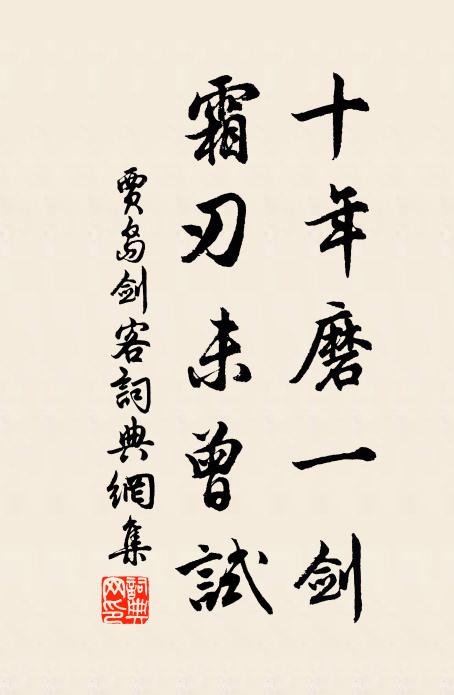 十年磨一剑
霜刃未曾試
賈島剑客詞典網集
詞典
网印